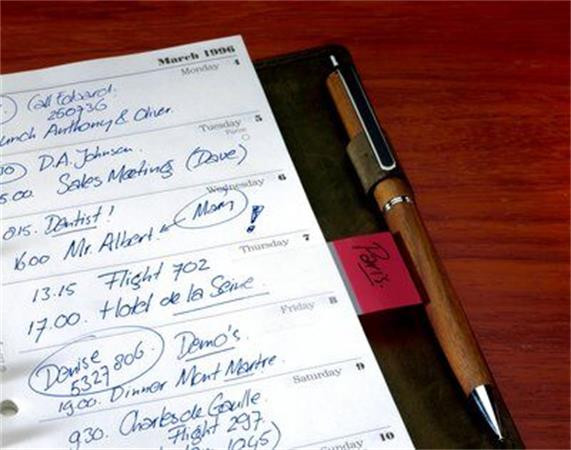 March 1996
Monday 4
Call Edward.
250736
Lunch Anthony & Oliver.
Tuesday 5
D.A. Johnson.
5.00. Sales Meeting (Dave)
Wednesday 6
815. Dentist!
1600 Mr. Albert. Mam !
Thursday 7
13.15 Flight 702
17.00. Hotel de la Seine
Friday 8
Denise 5327806. Demo's.
1900. Dinner Mont Martre.
Saturday 9
930. Charles de Gaulle.
Flight 297.
1245)
Sunday 10
Paris.